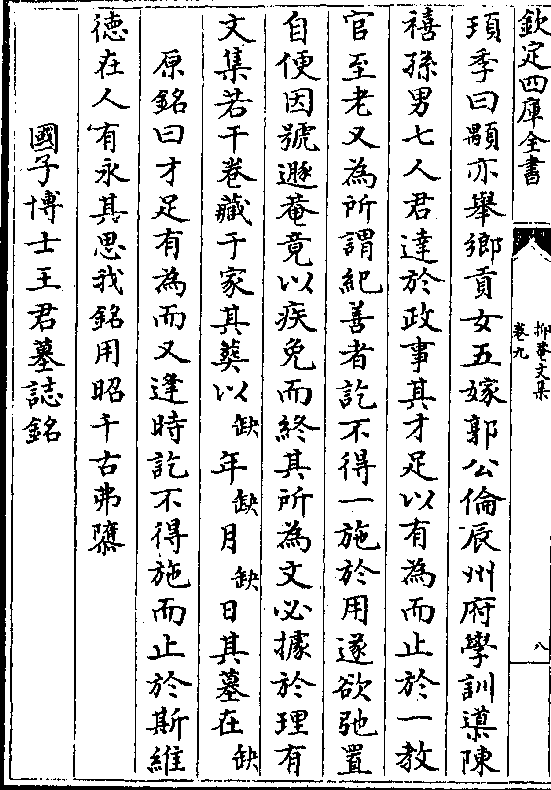 欽定四庫全書
抑菴文集
卷九
八
頊季曰顯亦舉鄉貢女五嫁郭公倫辰州府學訓導陳
禧孫男七人君達於政事其才足以有為而止於一教
官至老又為所謂紀善者訖不得一施於用遂欲弛置
自便因號遯菴竟以疾免而終其所為文必據於理有
文集若干卷藏于家其葬以缺年缺月缺日其墓在缺
原銘曰才足有為而又逢時訖不得施而止於斯維
德在人有永其思我銘用昭千古弗隳
國子博士王君墓誌銘